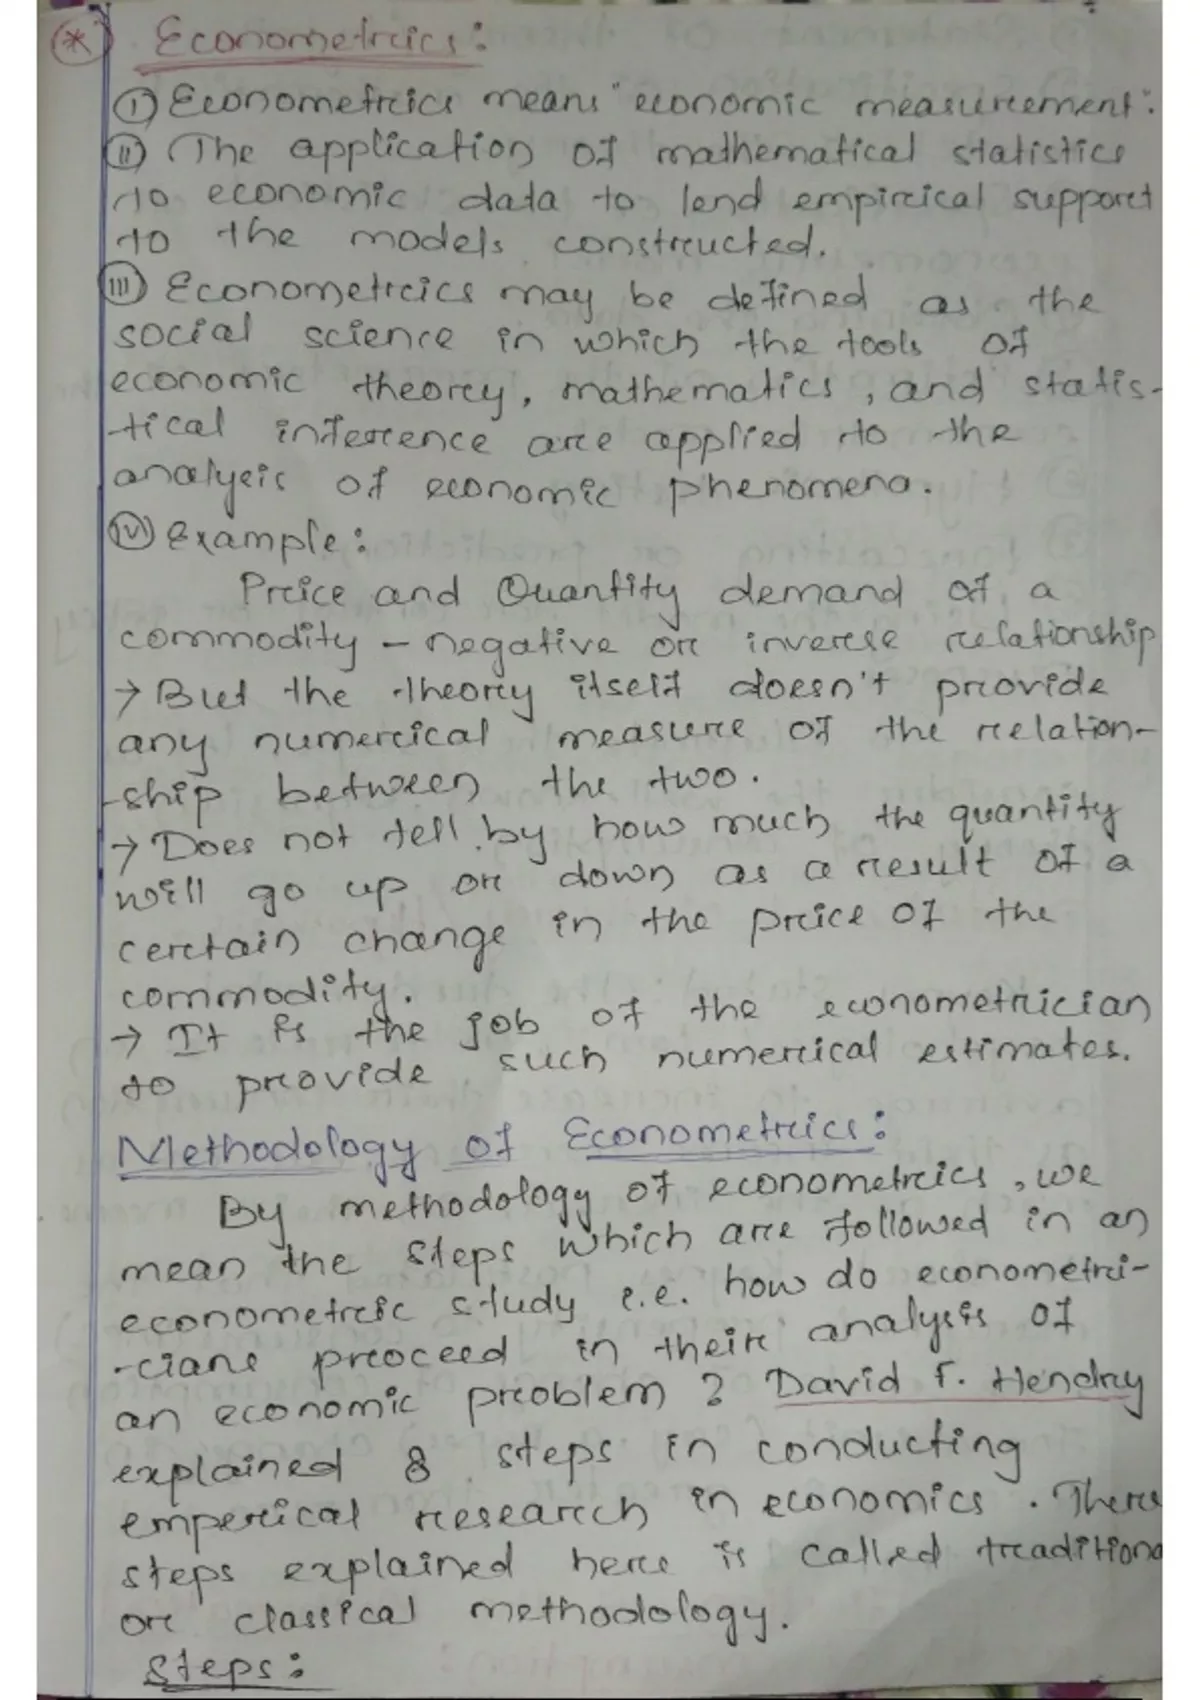 * Econometrics:
(i) Econometrics means "economic measurement".
(ii) The application of mathematical statistics
to economic data to lend empirical support
to the models constructed.
(iii) Econometrics may be defined as the
social science in which the tools of
economic theory, mathematics, and statis-
-tical inference are applied to the
analysis of economic phenomena.
(iv) Example:
Price and Quantity demand of a
commodity - negative or inverse relationship
→ But the theory itself doesn't provide
any numerical measure of the relation-
-ship between the two.
→ Does not tell by how much the quantity
will go up or down as a result of a
certain change in the price of the
commodity.
→ It is the job of the econometrician
to provide such numerical estimates.
Methodology of Econometrics:
By methodology of econometrics, we
mean the steps which are followed in an
econometric study i.e. how do econometri-
-cians proceed in their analysis of
an economic problem? David F. Hendry
explained 8 steps in conducting
emperical research in economics. There
steps explained here is called traditiona
or classical methodology.
Steps: